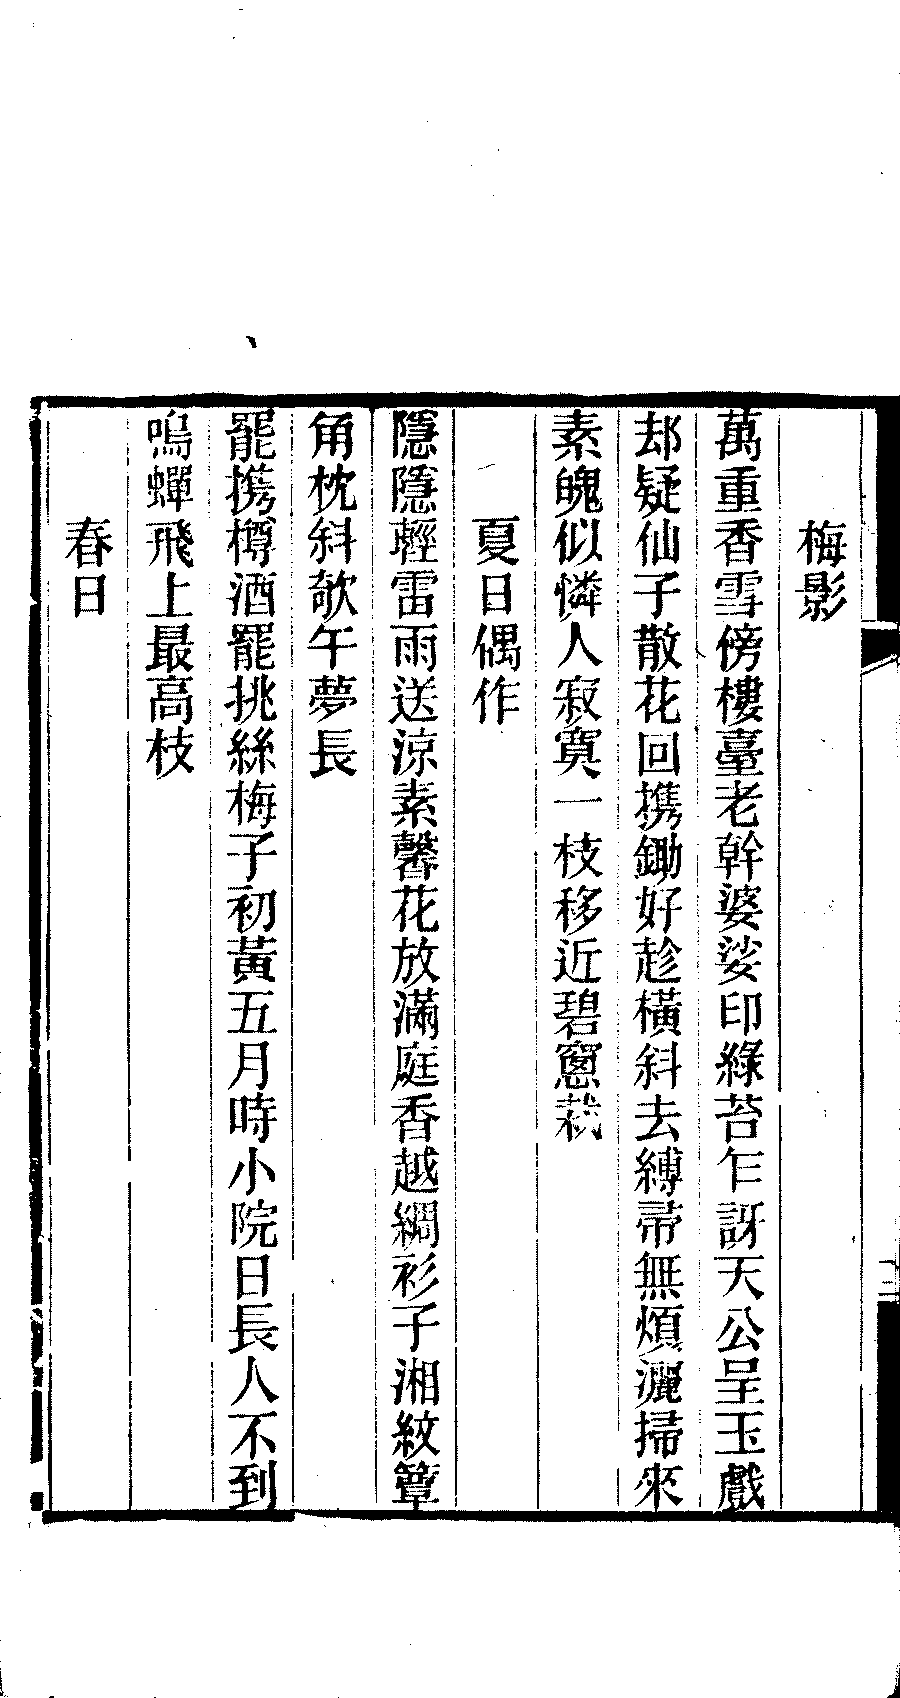 梅影
萬重香雪傍樓臺老幹婆娑印綠苔乍訝天公呈玉戲
却疑仙子散花回携鋤好趁橫斜去縛帚無煩灑掃來
素魄似憐人寂寞一枝移近碧窻栽
夏日偶作
隱隱輕雷雨送涼素馨花放滿庭香越綢衫子湘紋簟
角枕斜欹午夢長
罷携樽酒罷挑絲梅子初黃五月時小院日長人不到
鳴蟬飛上最高枝
春日